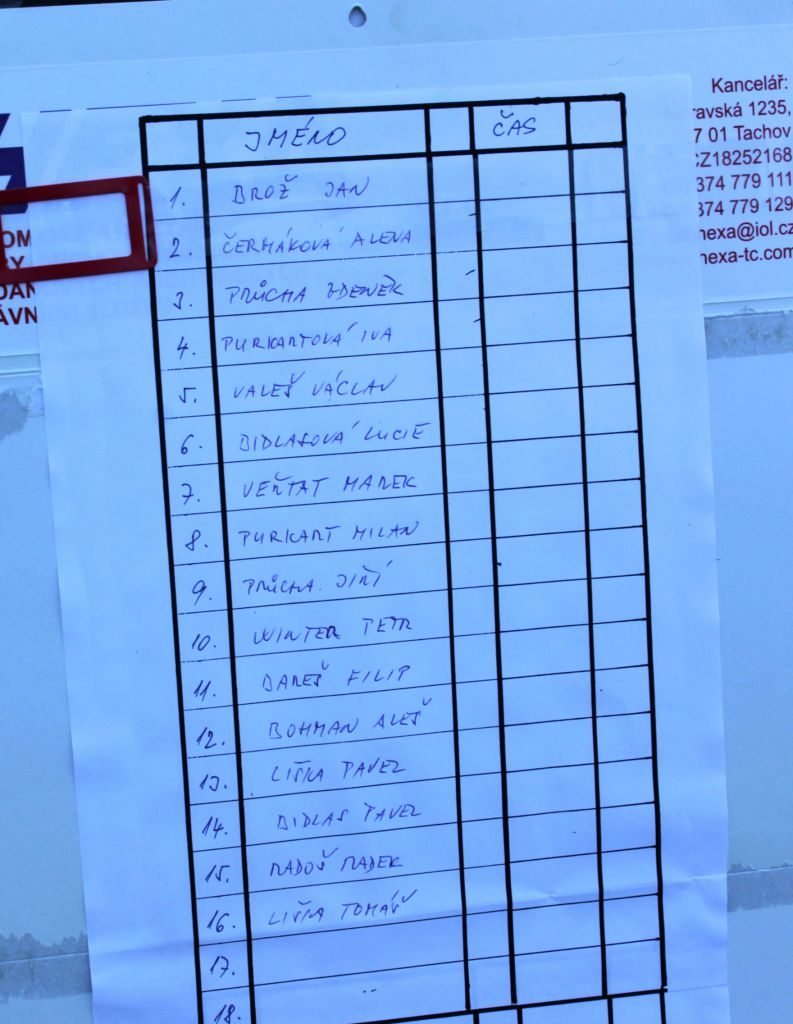 Kancelář:
ravská 1235,
7 01 Tachov
CZ18252168
374 779 111
374 779 129
nexa@iol.cz
nexa-tc.com
JMÉNO ČAS
1. BROŽ JAN
2. ČERMÁKOVÁ ALENA
3. PRŮCHA ZDENĚK
4. PURKARTOVÁ IVA
5. VALEŠ VÁCLAV
6. BIDLASOVÁ LUCIE
7. VEŘTAT MAREK
8. PURKART MILAN
9. PRŮCHA JIŘÍ
10. WINTER PETR
11. BAREŠ FILIP
12. BOHMAN ALEŠ
13. LIŠKA PAVEL
14. BIDLAS PAVEL
15. RADOŠ RADEK
16. LIŠKA TOMÁŠ
17.
18.